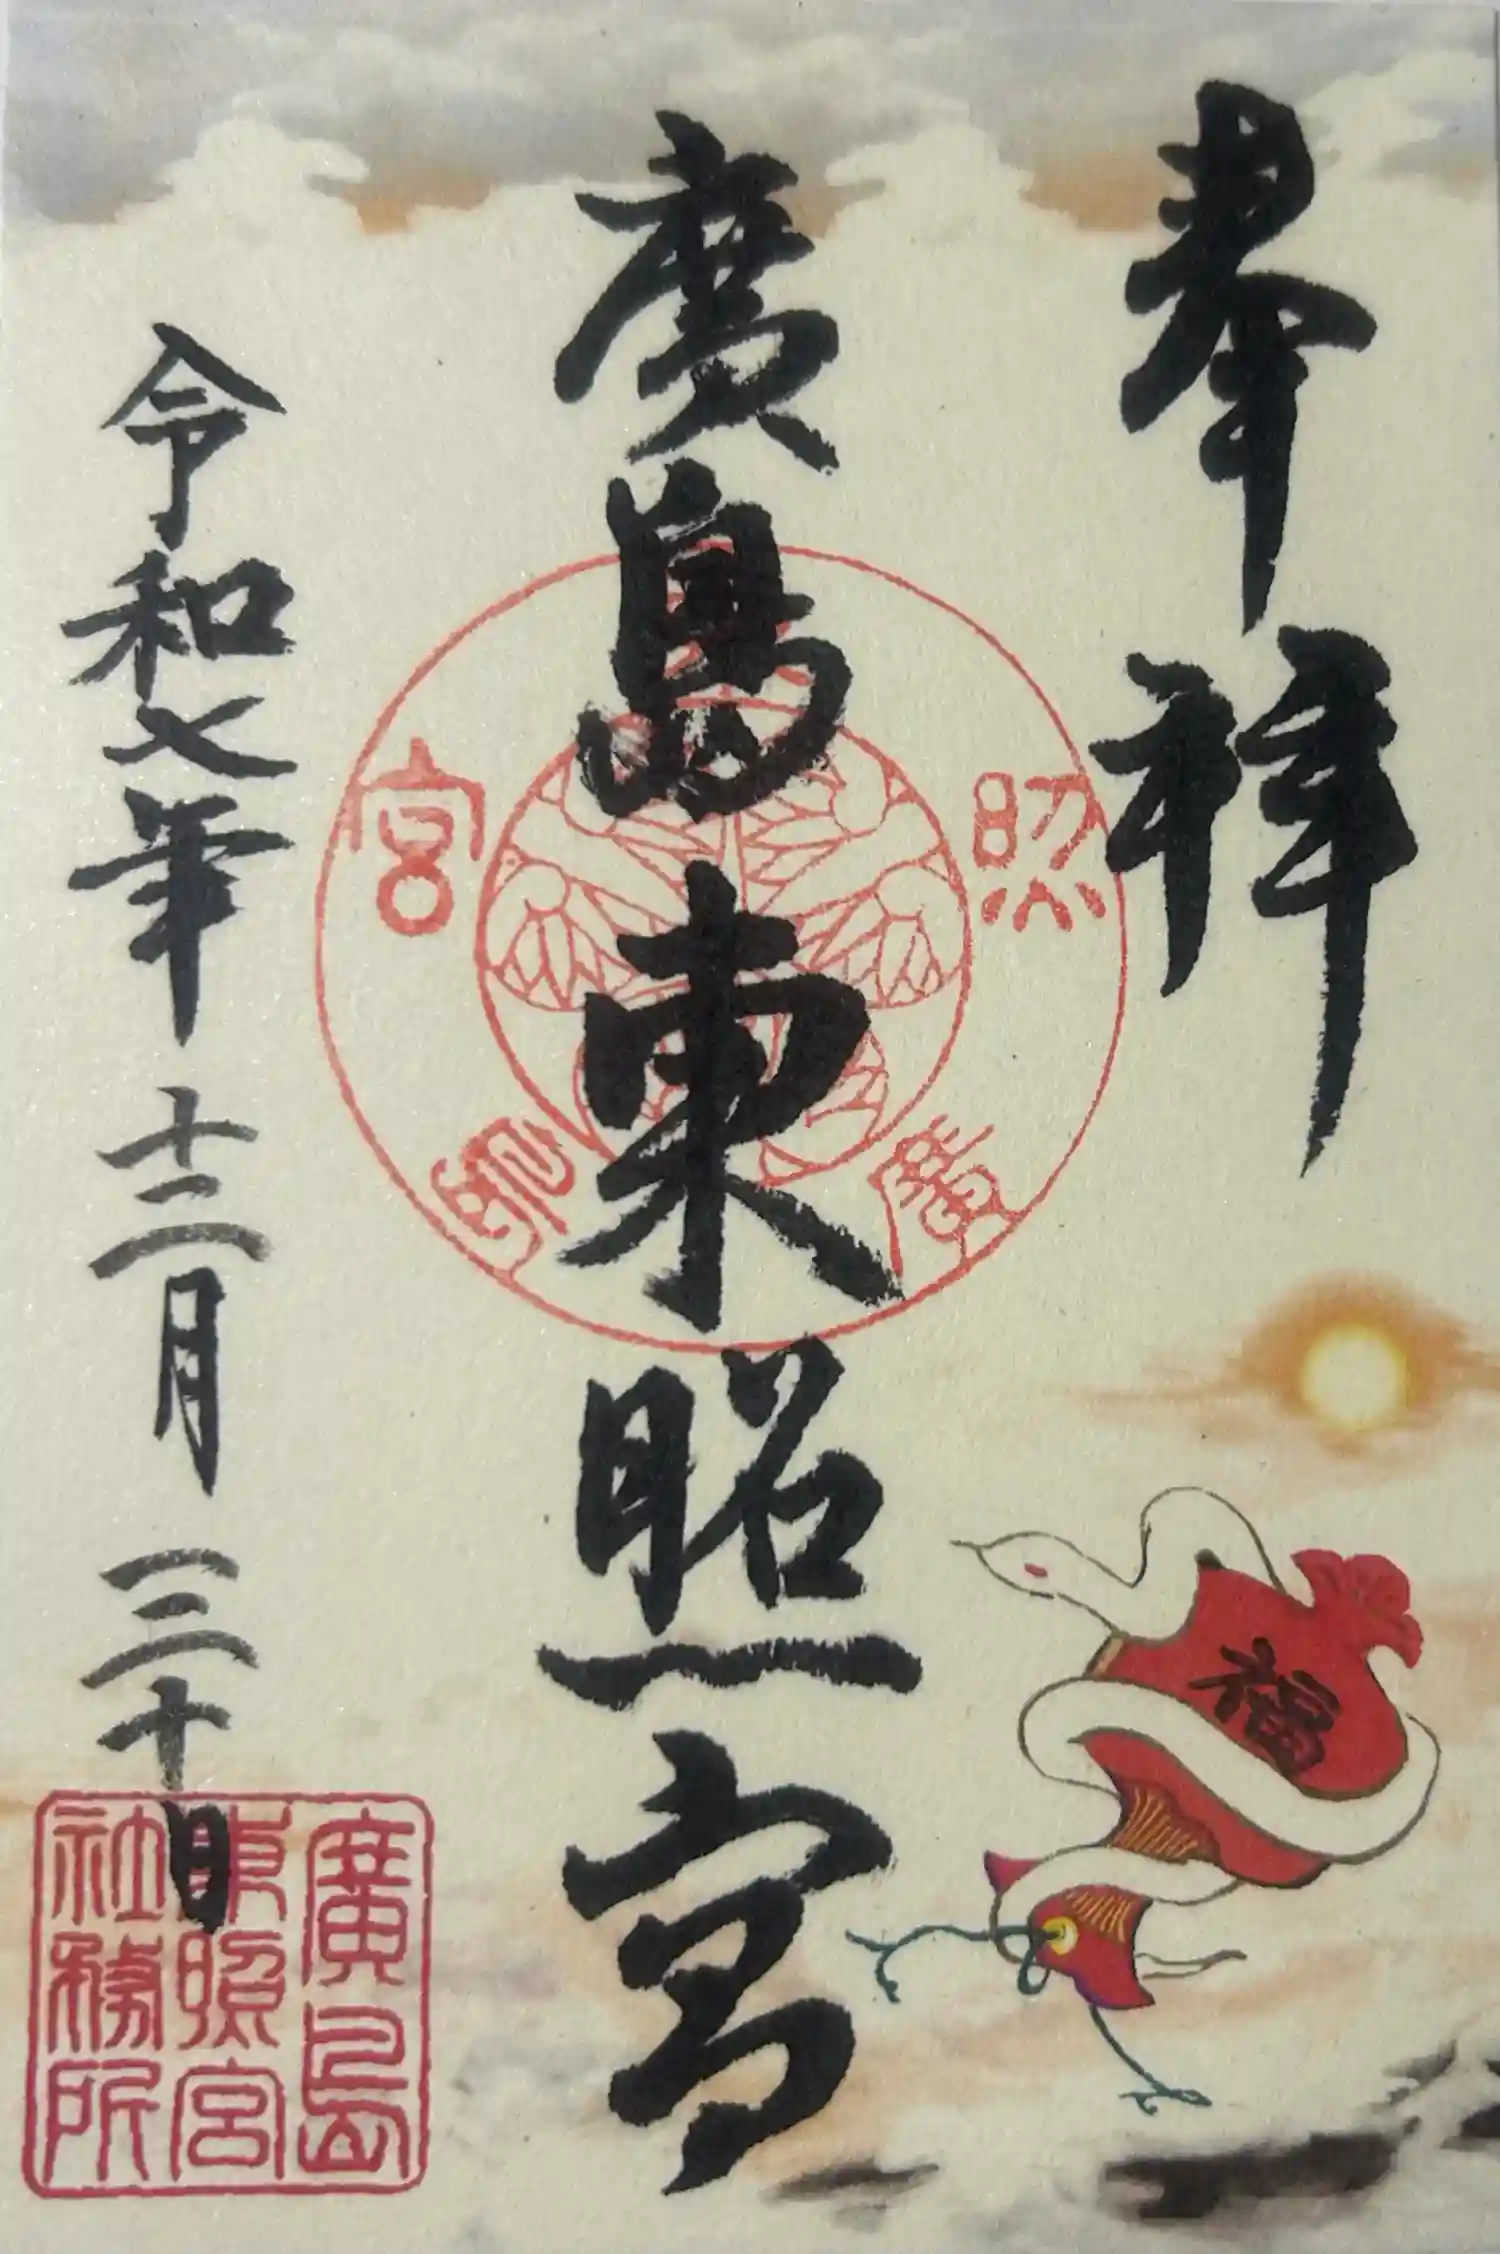 奉拝
廣島東照宮
令和七年十二月三十日
廣島東照宮
福
廣島
東照宮
社務所